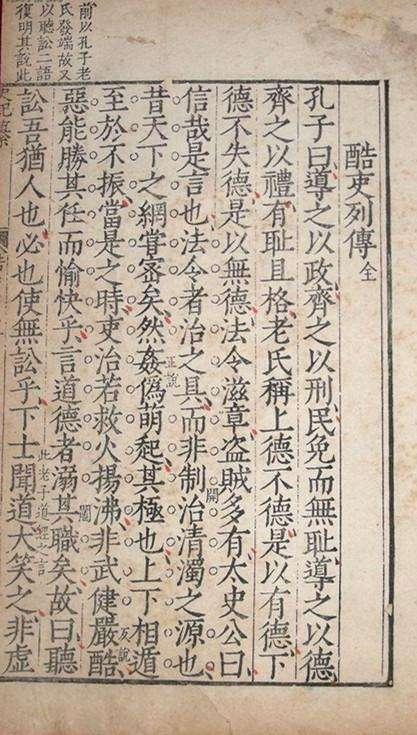 酷吏列傳 全
前以孔子老
氏發端故又
以聽訟二語
復明其說此
孔子曰導之以政齊之以刑民免而無耻導之以德
齊之以禮有耻且格老氏稱上德不德是以有德下
德不失德是以無德法令滋章盗賊多有太史公曰
開
信哉是言也法令者治之具而非制治清濁之源也
正說
昔天下之網嘗密矣然姦偽萌起其極也上下相遁
反說
至於不振當是之時吏治若救火揚沸非武健嚴酷
闔
惡能勝其任而愉快乎言道德者溺其職矣故曰聽
此老子道經之言
訟吾猶人也必也使無訟乎下士聞道大笑之非虛